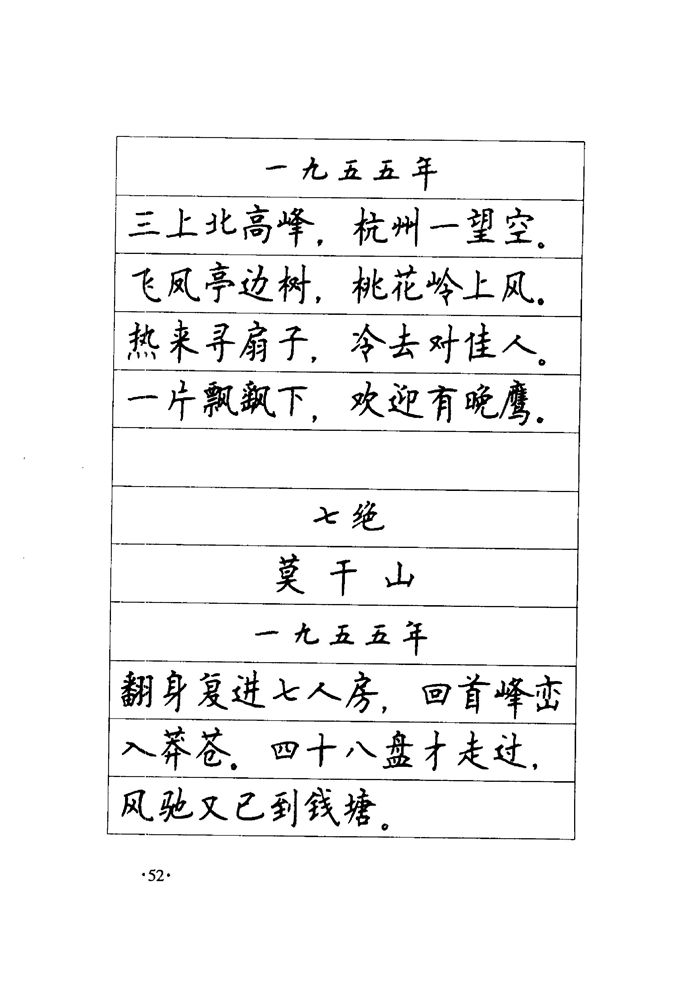 一九五五年
三上北高峰，杭州一望空。
飞凤亭边树，桃花岭上风。
热来寻扇子，冷去对佳人。
一片飘飖下，欢迎有晚鹰。
七绝
莫干山
一九五五年
翻身复进七人房，回首峰峦
入莽苍。四十八盘才走过，
风驰又已到钱塘。
·52·